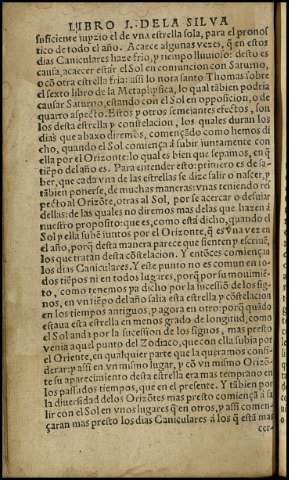 LIBRO I. DE LA SILVA
sufficiente juyzio el de vna estrella sola, para el pronos
tico de todo el año. Acaece algunas vezes, q̃ en estos
dias Caniculares haze frio, y tiempo lluuioso: desto es
causa, acaecer estar el Sol en conjuncion con Saturno,
o cõ otra estrella fria: assi lo nota santo Thomas sobre
el sexto libro de la Metaphysica, lo qual tãbien podria
causar Saturno, estando con el Sol en opposicion, o de
quarto aspecto. Estos y otros semejantes efectos, son
los desta estrella y constelacion, los quales duran los
dias que abaxo diremos, començãdo como hemos di
cho, quando el Sol comiença â subir juntamente con
ella por el Orizonte: lo qual es bien que sepamos, en q̃
tiẽpo del año es. Para entender esto: primero es de sa-
ber, que cada vna de las estrellas se dize salir o nascer, y
tãbien ponerse, de muchas maneras: vnas teniendo res
pecto al Orizõte, otras al Sol, por se acercar o desuiar
dellas: de las quales no diremos mas delas que hazen â
nuestro proposito: que es, como esta dicho, quando el
Sol y ella subẽ juntos por el Orizonte, q̃ es vna vez en
el año, porq̃ desta manera parece que sienten y escriuẽ,
los que tratan desta cõstelacion. Y entõces comiençan
los dias Caniculares. Y este punto no es comun en to-
dos tiẽpos ni en todos lugares, porq̃ por su mouimiẽ-
to, como tenemos ya dicho por la sucessiõ de los sig-
nos, en vn tiẽpo del año salia esta estrella y cõstelacion
en los tiempos antiguos, y agora en otro: porq̃ quãdo
estaua esta estrella en menos grado de longitud, como
el Sol anda por la sucession de los signos, mas presto
venia aquel punto del Zodiaco, que con ella subia por
el Oriente, en qualquier parte que la queramos consi-
derar: y assi en vn mismo lugar, y cõ vn mismo Orizõ-
te su aparecimiento desta estrella era mas temprano en
los passados tiempos, que en el presente. Y tãbien por
la diuersidad delos Orizõtes mas presto comiença â sa
lir con el Sol en vnos lugares q̃ en otros, y assi comen-
çaran mas presto los dias Caniculares â los q̃ està mas
cer-